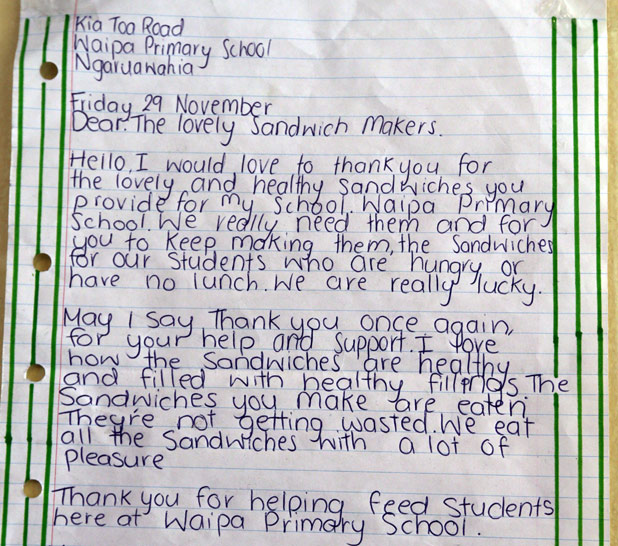 Kia Toa Road
Waipa Primary School
Ngaruawahia
Friday 29 November
Dear. The lovely Sandwich Makers.
Hello, I would love to thank you for
the lovely and healthy Sandwiches you
provide for my School. Waipa Primary
School. We really need them and for
you to keep making them, the Sandwiches
for our Students who are hungry or
have no lunch. We are really lucky.
May I Say Thank you once again,
for your help and Support. I love
how the Sandwiches are healthy
and filled with healthy fillings. The
Sandwiches you make are eaten.
They're not getting wasted. We eat
all the Sandwiches with a lot of
pleasure
Thank you for helping feed Students
here at Waipa Primary School.